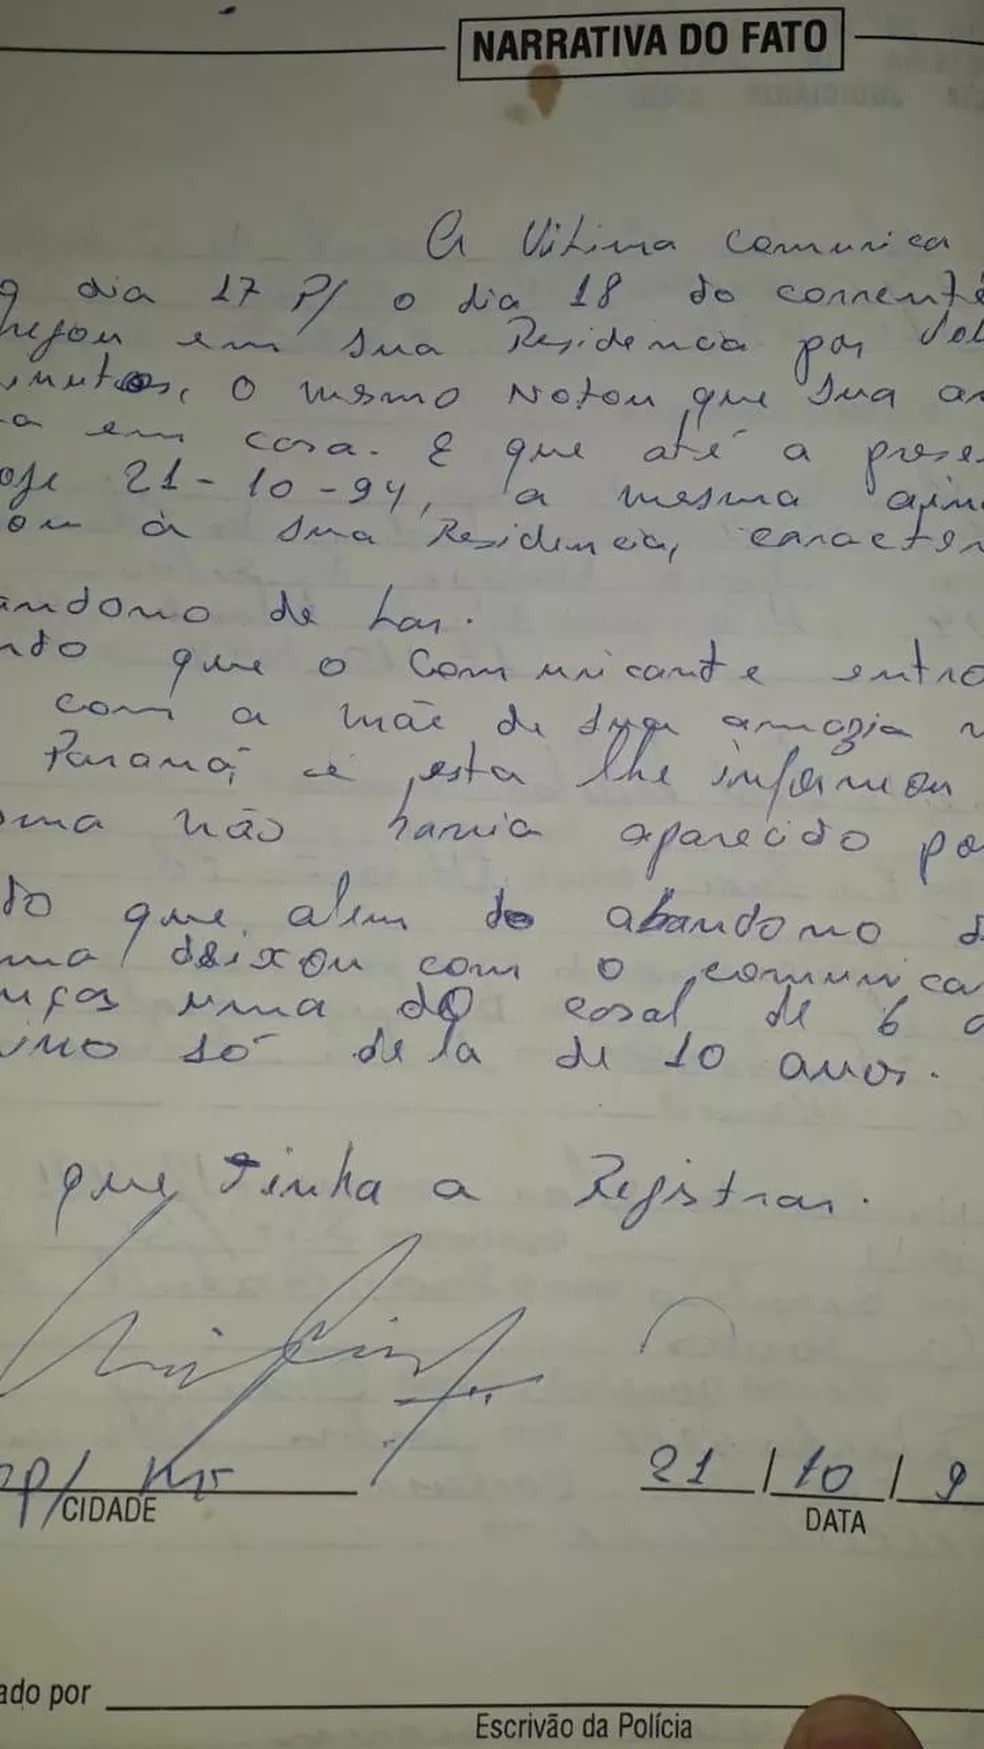 NARRATIVA DO FATO
A Vitima comunica
q dia 17 P/ o dia 18 do corrente
hegou em sua Residencia por Vol
inutos, o mesmo Notou que sua am
a em casa. E que até a prese
oje 21-10-94, a mesma ain
ou à sua Residencia, caracter
andono de Lar.
ndo que o Comunicante entro
com a mãe de sua amazia n
Paraná, e esta lhe informou
sma não havia aparecido po
do que alem do abandono d
ma deixou com o comunica
nças uma do casal de 6 a
ino só dela de 10 anos.
que tinha a Registrar.
op/MT
21/10/9
CIDADE
DATA
ado por
Escrivão da Polícia